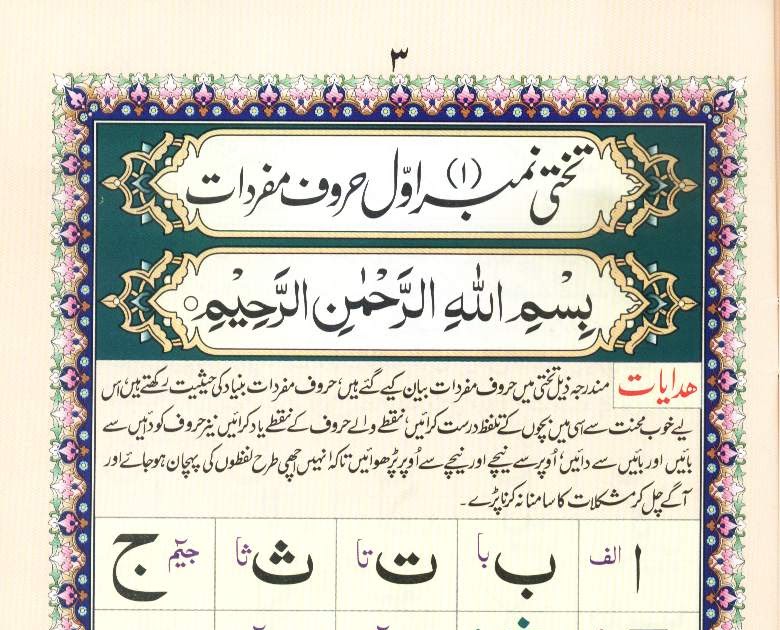 ۳
تختی نمبر (۱) اوّل حروف مفردات
بِسْمِ اللهِ الرَّحْمٰنِ الرَّحِيْمِ ○
ھدایات مندرجہ ذیل تختی میں حروف مفردات بیان کیے گئے ہیں، حروف مفردات بنیاد کی حیثیت رکھتے ہیں، اس
لیے خوب محنت سے اسی میں بچوں کے تلفظ درست کرائیں، نقطے والے حروف کے نقطے یاد کرائیں نیز حروف کو دائیں سے
بائیں اور بائیں سے دائیں، اُوپر سے نیچے اور نیچے سے اُوپر پڑھوائیں تاکہ اُنہیں اچھی طرح لفظوں کی پہچان ہو جائے اور
آگے چل کر مشکلات کا سامنا نہ کرنا پڑے۔
ا الف ب با ت تا ث ثا ج جیم